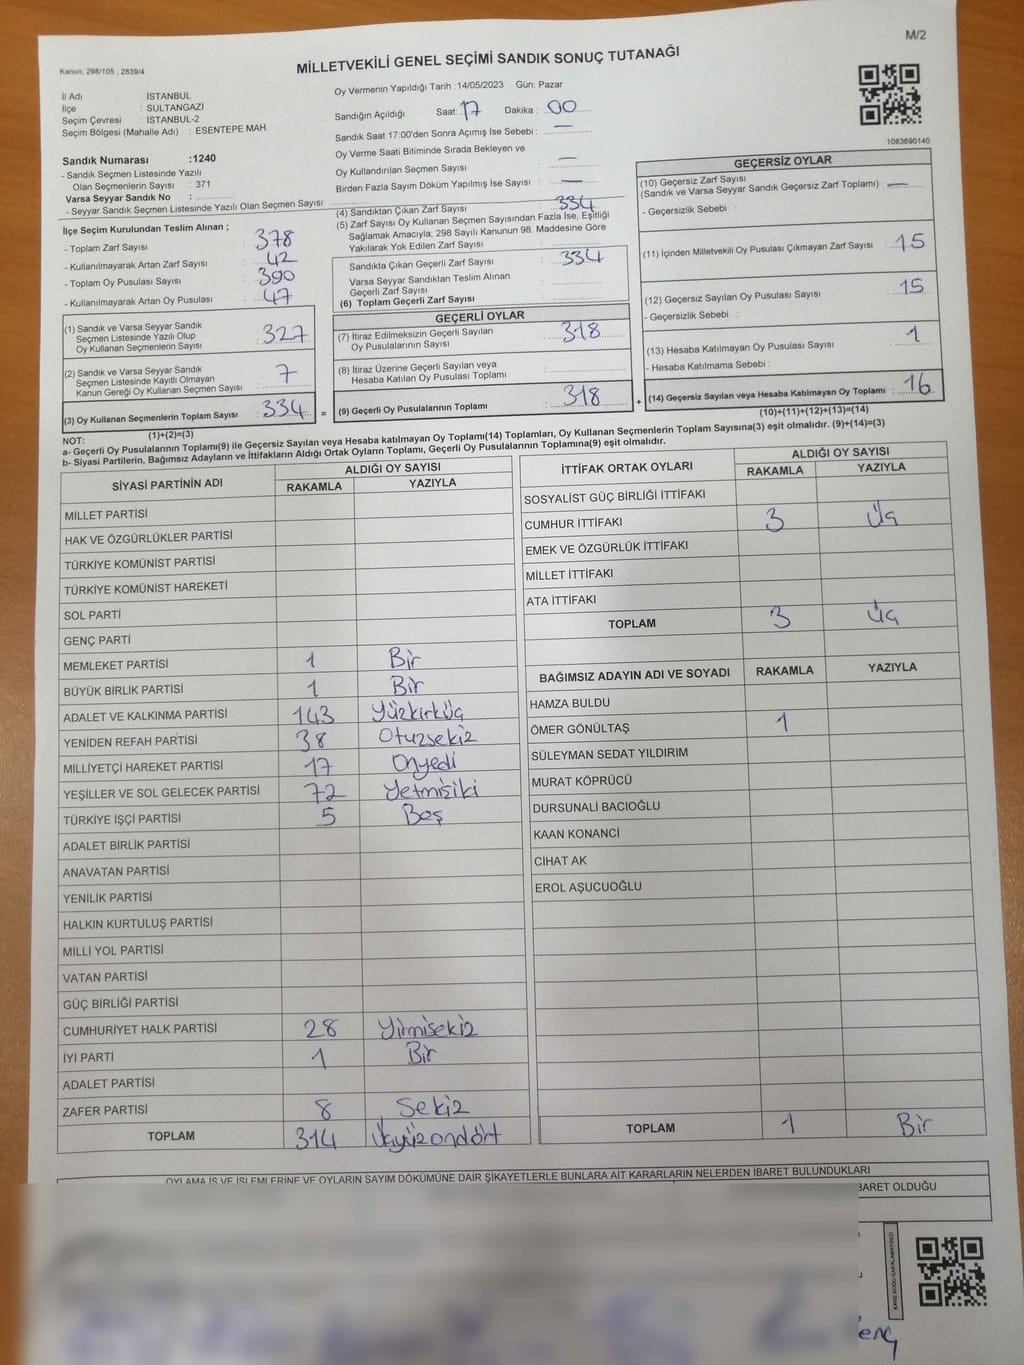 M/2
Kanun: 298/105 , 2839/4
MİLLETVEKİLİ GENEL SEÇİMİ SANDIK SONUÇ TUTANAĞI
İl Adı : İSTANBUL
İlçe : SULTANGAZİ
Seçim Çevresi : İSTANBUL-2
Seçim Bölgesi (Mahalle Adı) : ESENTEPE MAH.
Sandık Numarası :1240
- Sandık Seçmen Listesinde Yazılı
Olan Seçmenlerin Sayısı : 371
Varsa Seyyar Sandık No :
- Seyyar Sandık Seçmen Listesinde Yazılı Olan Seçmen Sayısı:
Oy Vermenin Yapıldığı Tarih : 14/05/2023 Gün: Pazar
Sandığın Açıldığı Saat: 17 Dakika : 00
Sandık Saat 17:00'den Sonra Açımış İse Sebebi : —
Oy Verme Saati Bitiminde Sırada Bekleyen ve
Oy Kullandırılan Seçmen Sayısı : —
Birden Fazla Sayım Döküm Yapılmış İse Sayısı : —
1083690140
İlçe Seçim Kurulundan Teslim Alınan ;
- Toplam Zarf Sayısı : 378
- Kullanılmayarak Artan Zarf Sayısı : 42
- Toplam Oy Pusulası Sayısı : 390
- Kullanılmayarak Artan Oy Pusulası : 47
(1) Sandık ve Varsa Seyyar Sandık
Seçmen Listesinde Yazılı Olup
Oy Kullanan Seçmenlerin Sayısı : 327
(2) Sandık ve Varsa Seyyar Sandık
Seçmen Listesinde Kayıtlı Olmayan
Kanun Gereği Oy Kullanan Seçmen Sayısı : 7
(3) Oy Kullanan Seçmenlerin Toplam Sayısı : 334 =
(1)+(2)=(3)
(4) Sandıktan Çıkan Zarf Sayısı : 334
(5) Zarf Sayısı Oy Kullanan Seçmen Sayısından Fazla İse, Eşitliği
Sağlamak Amacıyla; 298 Sayılı Kanunun 98. Maddesine Göre
Yakılarak Yok Edilen Zarf Sayısı :
Sandıkta Çıkan Geçerli Zarf Sayısı : 334
Varsa Seyyar Sandıktan Teslim Alınan
Geçerli Zarf Sayısı :
(6) Toplam Geçerli Zarf Sayısı :
GEÇERLİ OYLAR
(7) İtiraz Edilmeksizin Geçerli Sayılan
Oy Pusulalarının Sayısı : 318
(8) İtiraz Üzerine Geçerli Sayılan veya
Hesaba Katılan Oy Pusulası Toplamı :
(9) Geçerli Oy Pusulalarının Toplamı : 318 +
GEÇERSİZ OYLAR
(10) Geçersiz Zarf Sayısı
(Sandık ve Varsa Seyyar Sandık Geçersiz Zarf Toplamı) : —
- Geçersizlik Sebebi :
(11) İçinden Milletvekili Oy Pusulası Çıkmayan Zarf Sayısı : 15
(12) Geçersiz Sayılan Oy Pusulası Sayısı : 15
- Geçersizlik Sebebi :
(13) Hesaba Katılmayan Oy Pusulası Sayısı : 1
- Hesaba Katılmama Sebebi :
(14) Geçersiz Sayılan veya Hesaba Katılmayan Oy Toplamı : 16
(10)+(11)+(12)+(13)=(14)
NOT:
a- Geçerli Oy Pusulalarının Toplamı(9) ile Geçersiz Sayılan veya Hesaba katılmayan Oy Toplamı(14) Toplamları, Oy Kullanan Seçmenlerin Toplam Sayısına(3) eşit olmalıdır. (9)+(14)=(3)
b- Siyasi Partilerin, Bağımsız Adayların ve İttifakların Aldığı Ortak Oyların Toplamı, Geçerli Oy Pusulalarının Toplamına(9) eşit olmalıdır.
SİYASİ PARTİNİN ADI ALDIĞI OY SAYISI
RAKAMLA YAZIYLA
MİLLET PARTİSİ
HAK VE ÖZGÜRLÜKLER PARTİSİ
TÜRKİYE KOMÜNİST PARTİSİ
TÜRKİYE KOMÜNİST HAREKETİ
SOL PARTİ
GENÇ PARTİ
MEMLEKET PARTİSİ 1 Bir
BÜYÜK BİRLİK PARTİSİ 1 Bir
ADALET VE KALKINMA PARTİSİ 143 Yüzkırküç
YENİDEN REFAH PARTİSİ 38 Otuzsekiz
MİLLİYETÇİ HAREKET PARTİSİ 17 Onyedi
YEŞİLLER VE SOL GELECEK PARTİSİ 72 Yetmişiki
TÜRKİYE İŞÇİ PARTİSİ 5 Beş
ADALET BİRLİK PARTİSİ
ANAVATAN PARTİSİ
YENİLİK PARTİSİ
HALKIN KURTULUŞ PARTİSİ
MİLLİ YOL PARTİSİ
VATAN PARTİSİ
GÜÇ BİRLİĞİ PARTİSİ
CUMHURİYET HALK PARTİSİ 28 Yirmisekiz
İYİ PARTİ 1 Bir
ADALET PARTİSİ
ZAFER PARTİSİ 8 Sekiz
TOPLAM 314 Üçyüzondört
İTTİFAK ORTAK OYLARI ALDIĞI OY SAYISI
RAKAMLA YAZIYLA
SOSYALİST GÜÇ BİRLİĞİ İTTİFAKI
CUMHUR İTTİFAKI 3 Üç
EMEK VE ÖZGÜRLÜK İTTİFAKI
MİLLET İTTİFAKI
ATA İTTİFAKI
TOPLAM 3 Üç
BAĞIMSIZ ADAYIN ADI VE SOYADI RAKAMLA YAZIYLA
HAMZA BULDU
ÖMER GÖNÜLTAŞ 1
SÜLEYMAN SEDAT YILDIRIM
MURAT KÖPRÜCÜ
DURSUNALİ BACIOĞLU
KAAN KONANCİ
CİHAT AK
EROL AŞUCUOĞLU
TOPLAM 1 Bir
OYLAMA İŞ VE İŞLEMLERİNE VE OYLARIN SAYIM DÖKÜMÜNE DAİR ŞİKAYETLERLE BUNLARA AİT KARARLARIN NELERDEN İBARET BULUNDUKLARI
BARET OLDUĞU
KARE KODU KARALAMAYINIZ!
enç